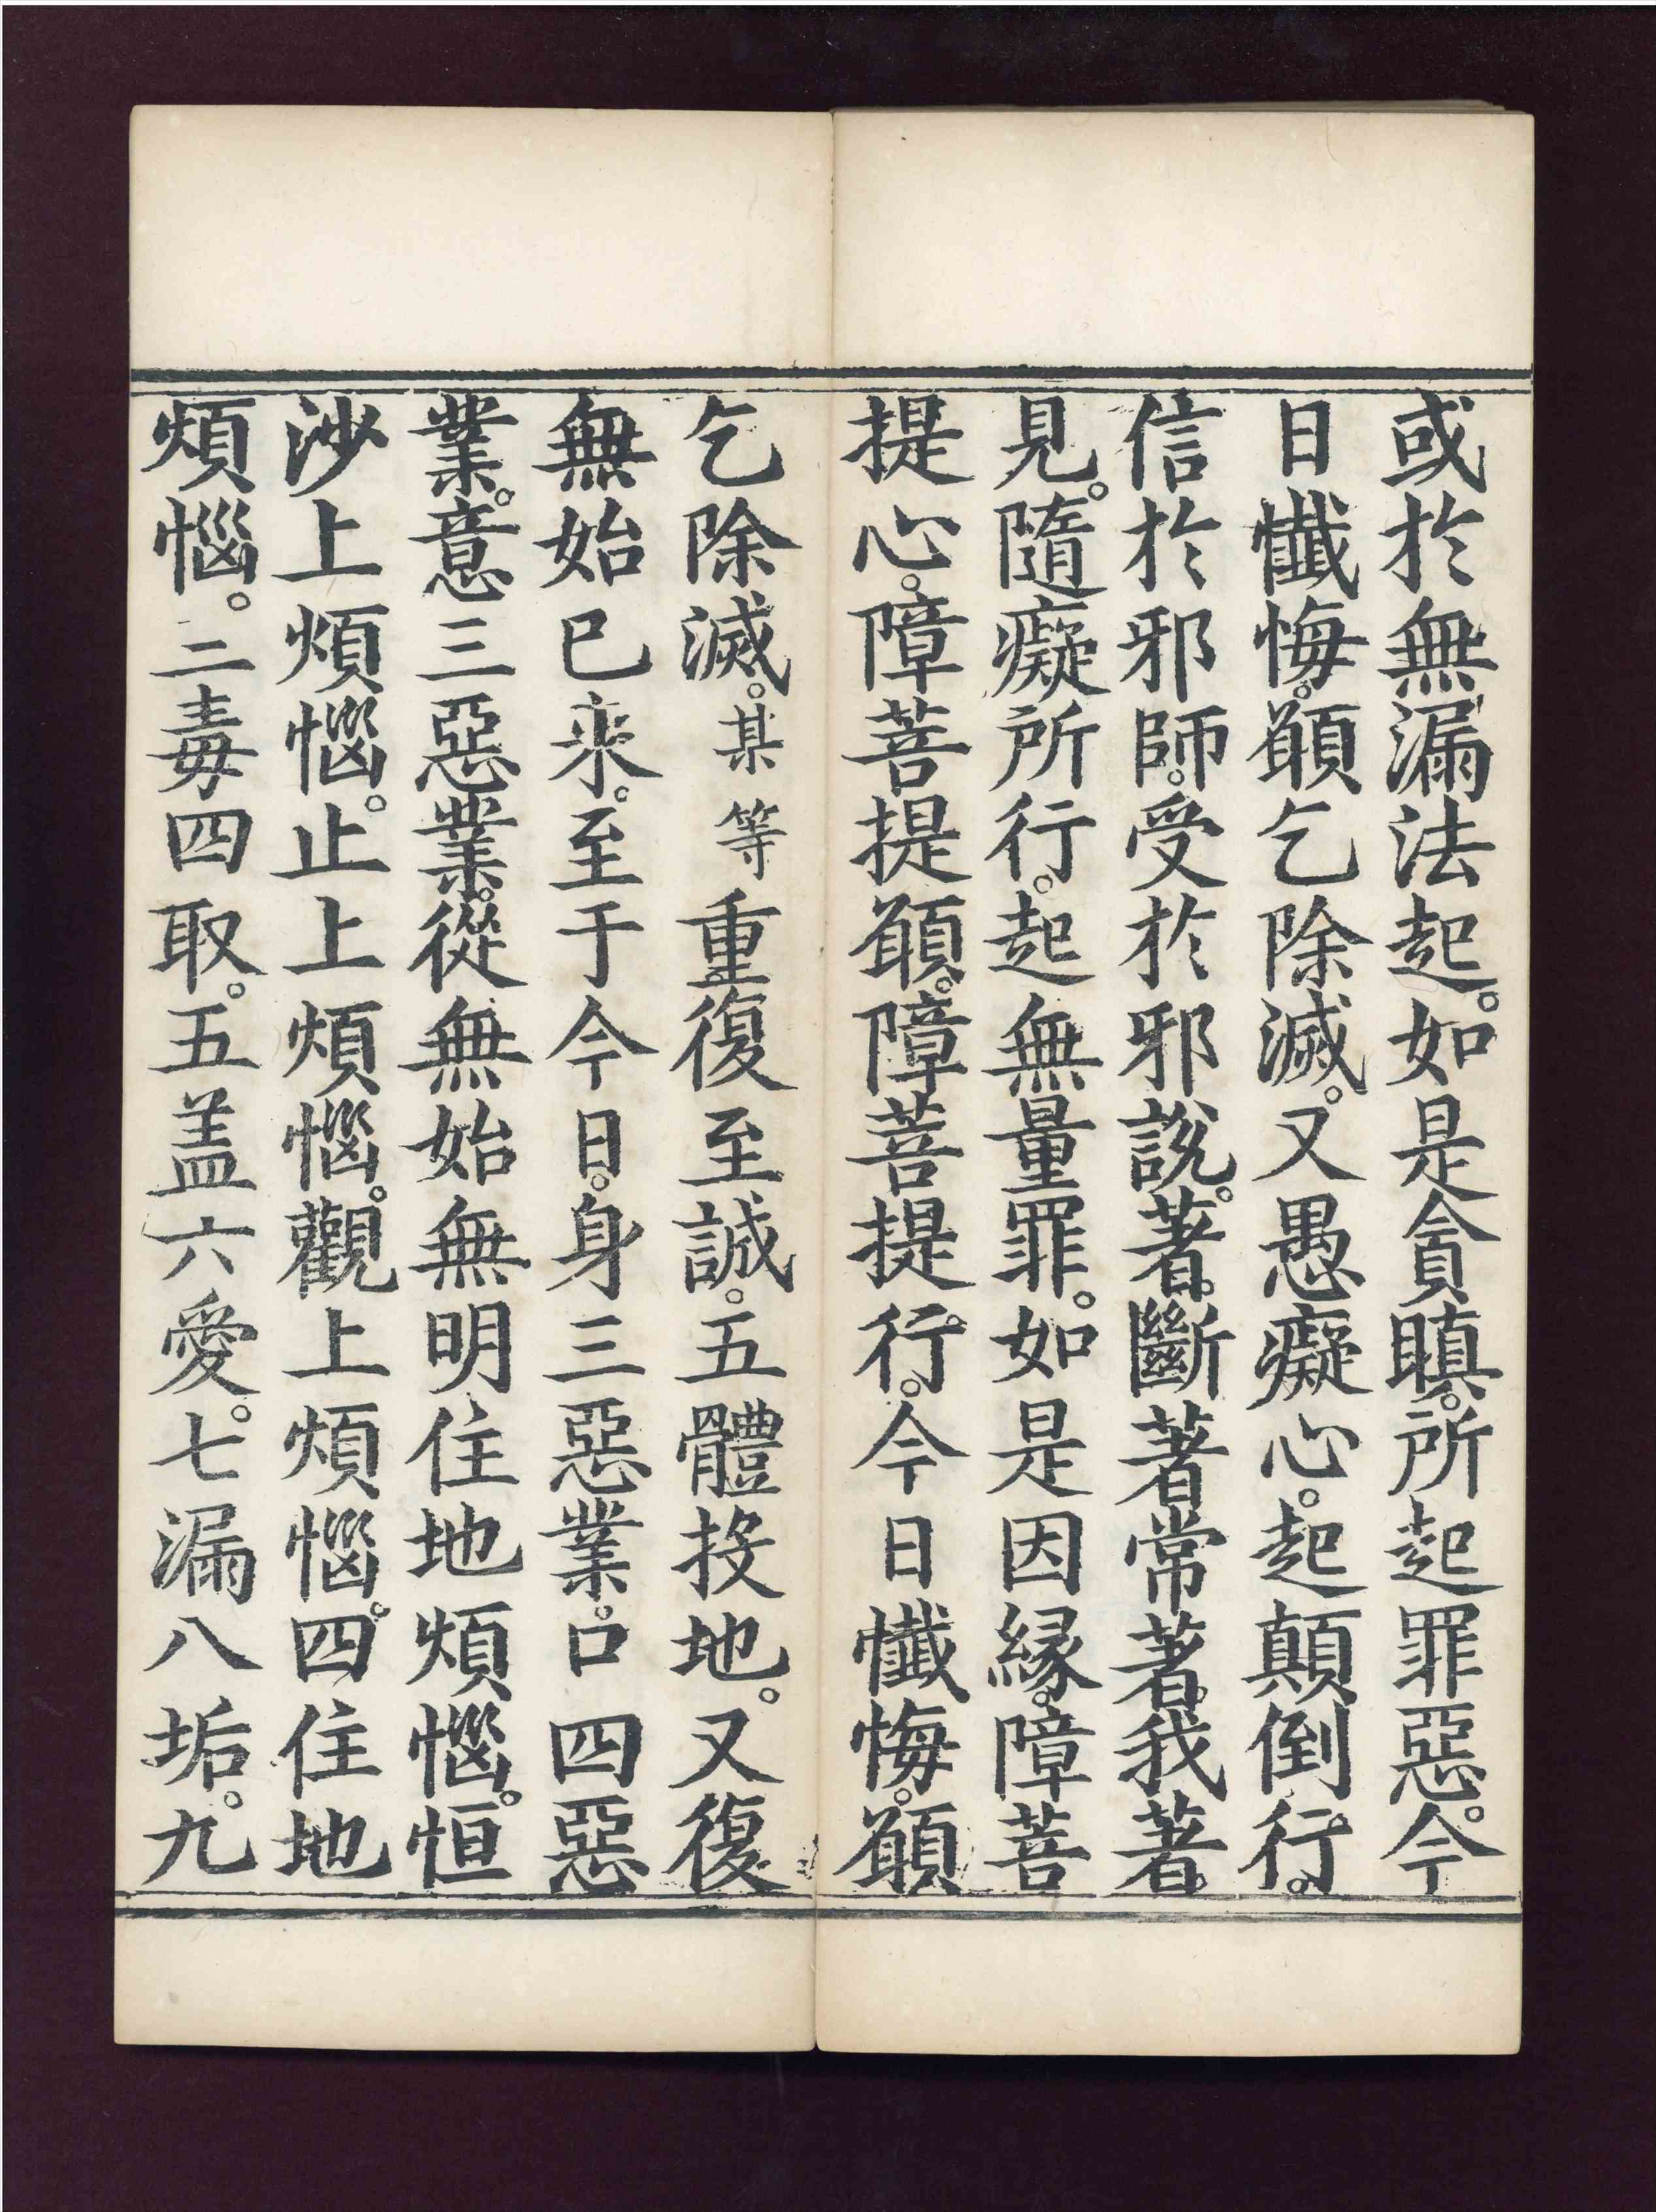 或於無漏法起。如是貪瞋。所起罪惡。今
日懺悔。願乞除滅。又愚癡心。起顛倒行。
信於邪師。受於邪說。著。斷著常著。我著。
見。隨癡所行。起無量罪。如是因緣。障菩
提心。障菩提願。障菩提行。今日懺悔。願
乞除滅。某等重復至誠。五體投地。又復
無始已來。至于今日。身三惡業。口四惡
業。意三惡業。從無始無明住地煩惱。恒
沙上煩惱。止上煩惱。觀上煩惱。四住地
煩惱。三毒四取。五盖六愛。七漏八垢。九